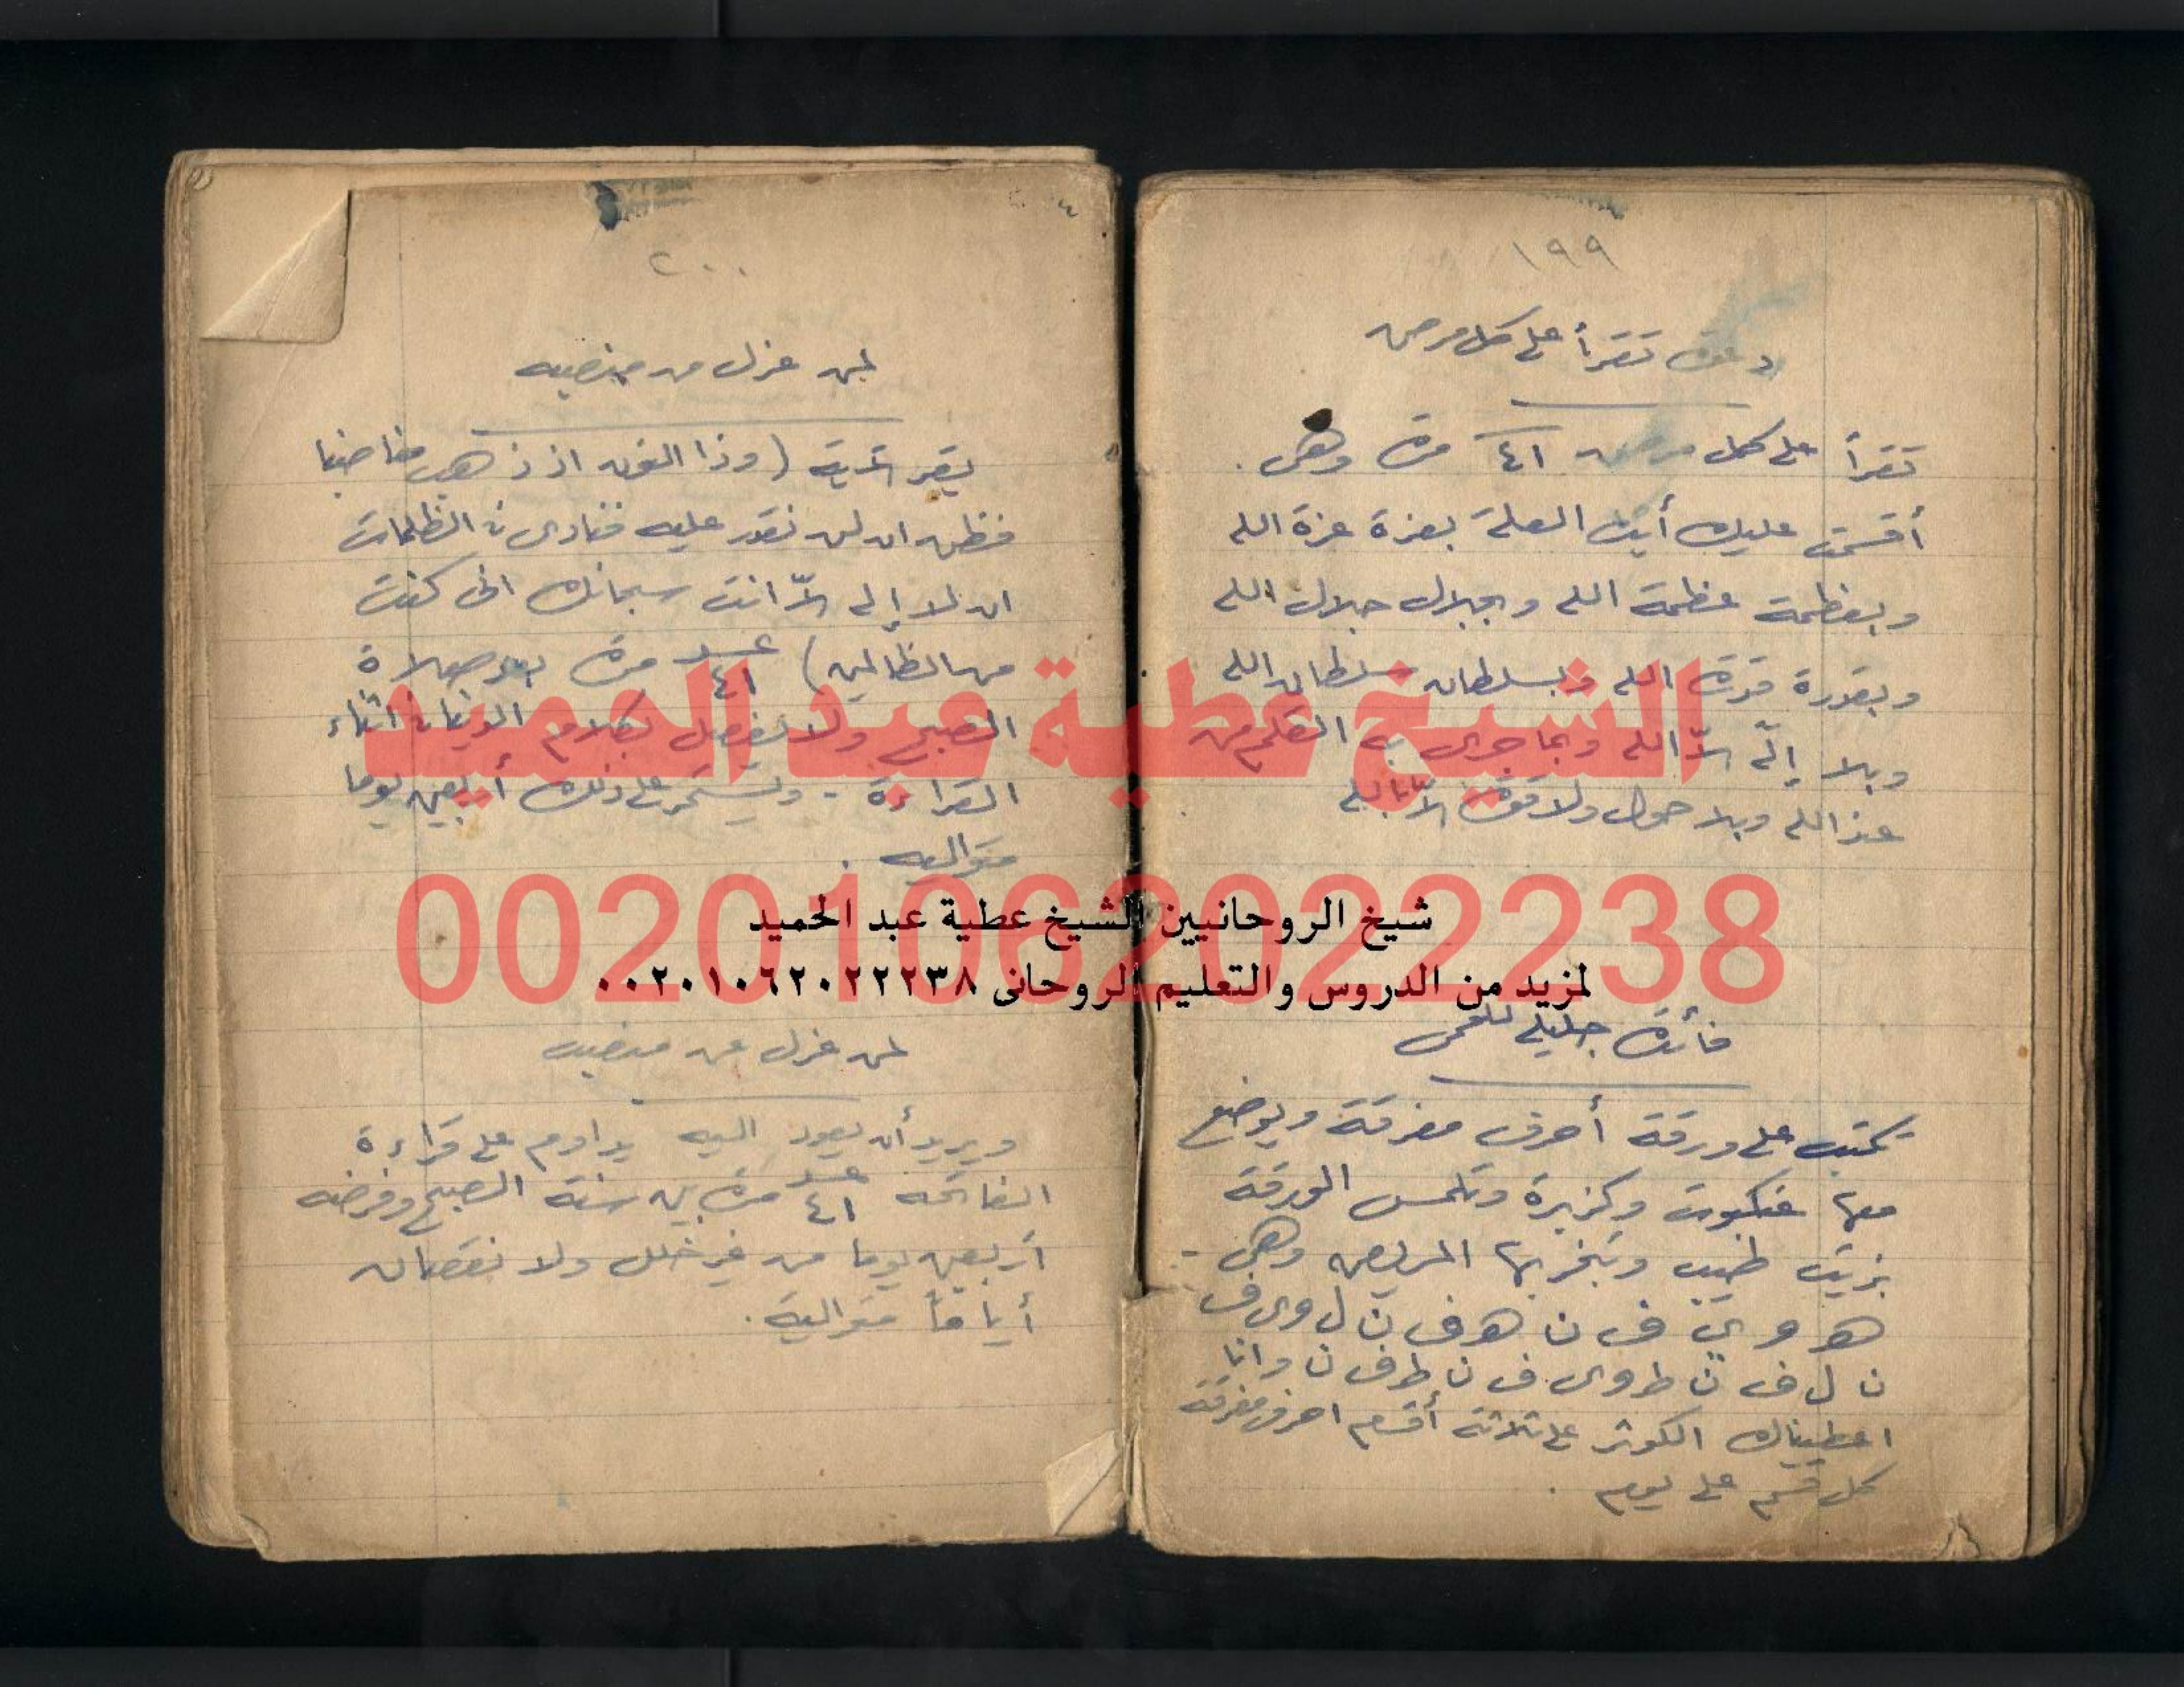 ١٩٩
دعوة تقرأ على كل مرض
تقرأ على كل مرض ٤١ مرة وهى .
أقسمت عليك أيتها العلة بعزة عزة الله
وبعظمة عظمة الله وبجلال جلال الله
وبقدرة قدرة الله وبسلطان سلطان الله
وبلا إله إلا الله وبما جرى به القلم من
عند الله وبلا حول ولا قوة إلا بالله
فائدة جليلة للحمى
تكتب على ورقة أحرف مفرقة ويوضع
معها عنكبوت وكزبرة وتغمس الورقة
بزيت طيب وتبخر بها المريض وهى -
هـ و ى ف ن هـ ف ن ل و ى ف
ن ل ف ن ط و ى ف ن ط ف ن وانا
اعطيناك الكوثر على ثلاثة أقسام احرف مفرقة
كل قسم على يوم .
٢٠٠
لمن عزل من منصبه
يقرأ آية (وذا النون اذ ذهب مغاضبا
فظن ان لن نقدر عليه فنادى فى الظلمات
ان لا إله إلا انت سبحانك انى كنت
من الظالمين) عدد ٤١ مرة بعد صلاة
الصبح ولا يفصل بكلام الدنيا فى اثناء
القراءة - ويستمر على ذلك أربعين يوما
متواليه .
لمن عزل عن منصبه
ويريد أن يعود اليه يداوم على قراءة
الفاتحه عدد ٤١ مرة بين سنة الصبح وفرضه
أربعين يوما من غير خلل ولا نقصان
أياماً متوالية .
الشيخ عطية عبد الحميد
00201062022238
شيخ الروحانيين الشيخ عطية عبد الحميد
لمزيد من الدروس والتعليم الروحانى ٠٠٢٠١٠٦٢٠٢٢٢٣٨